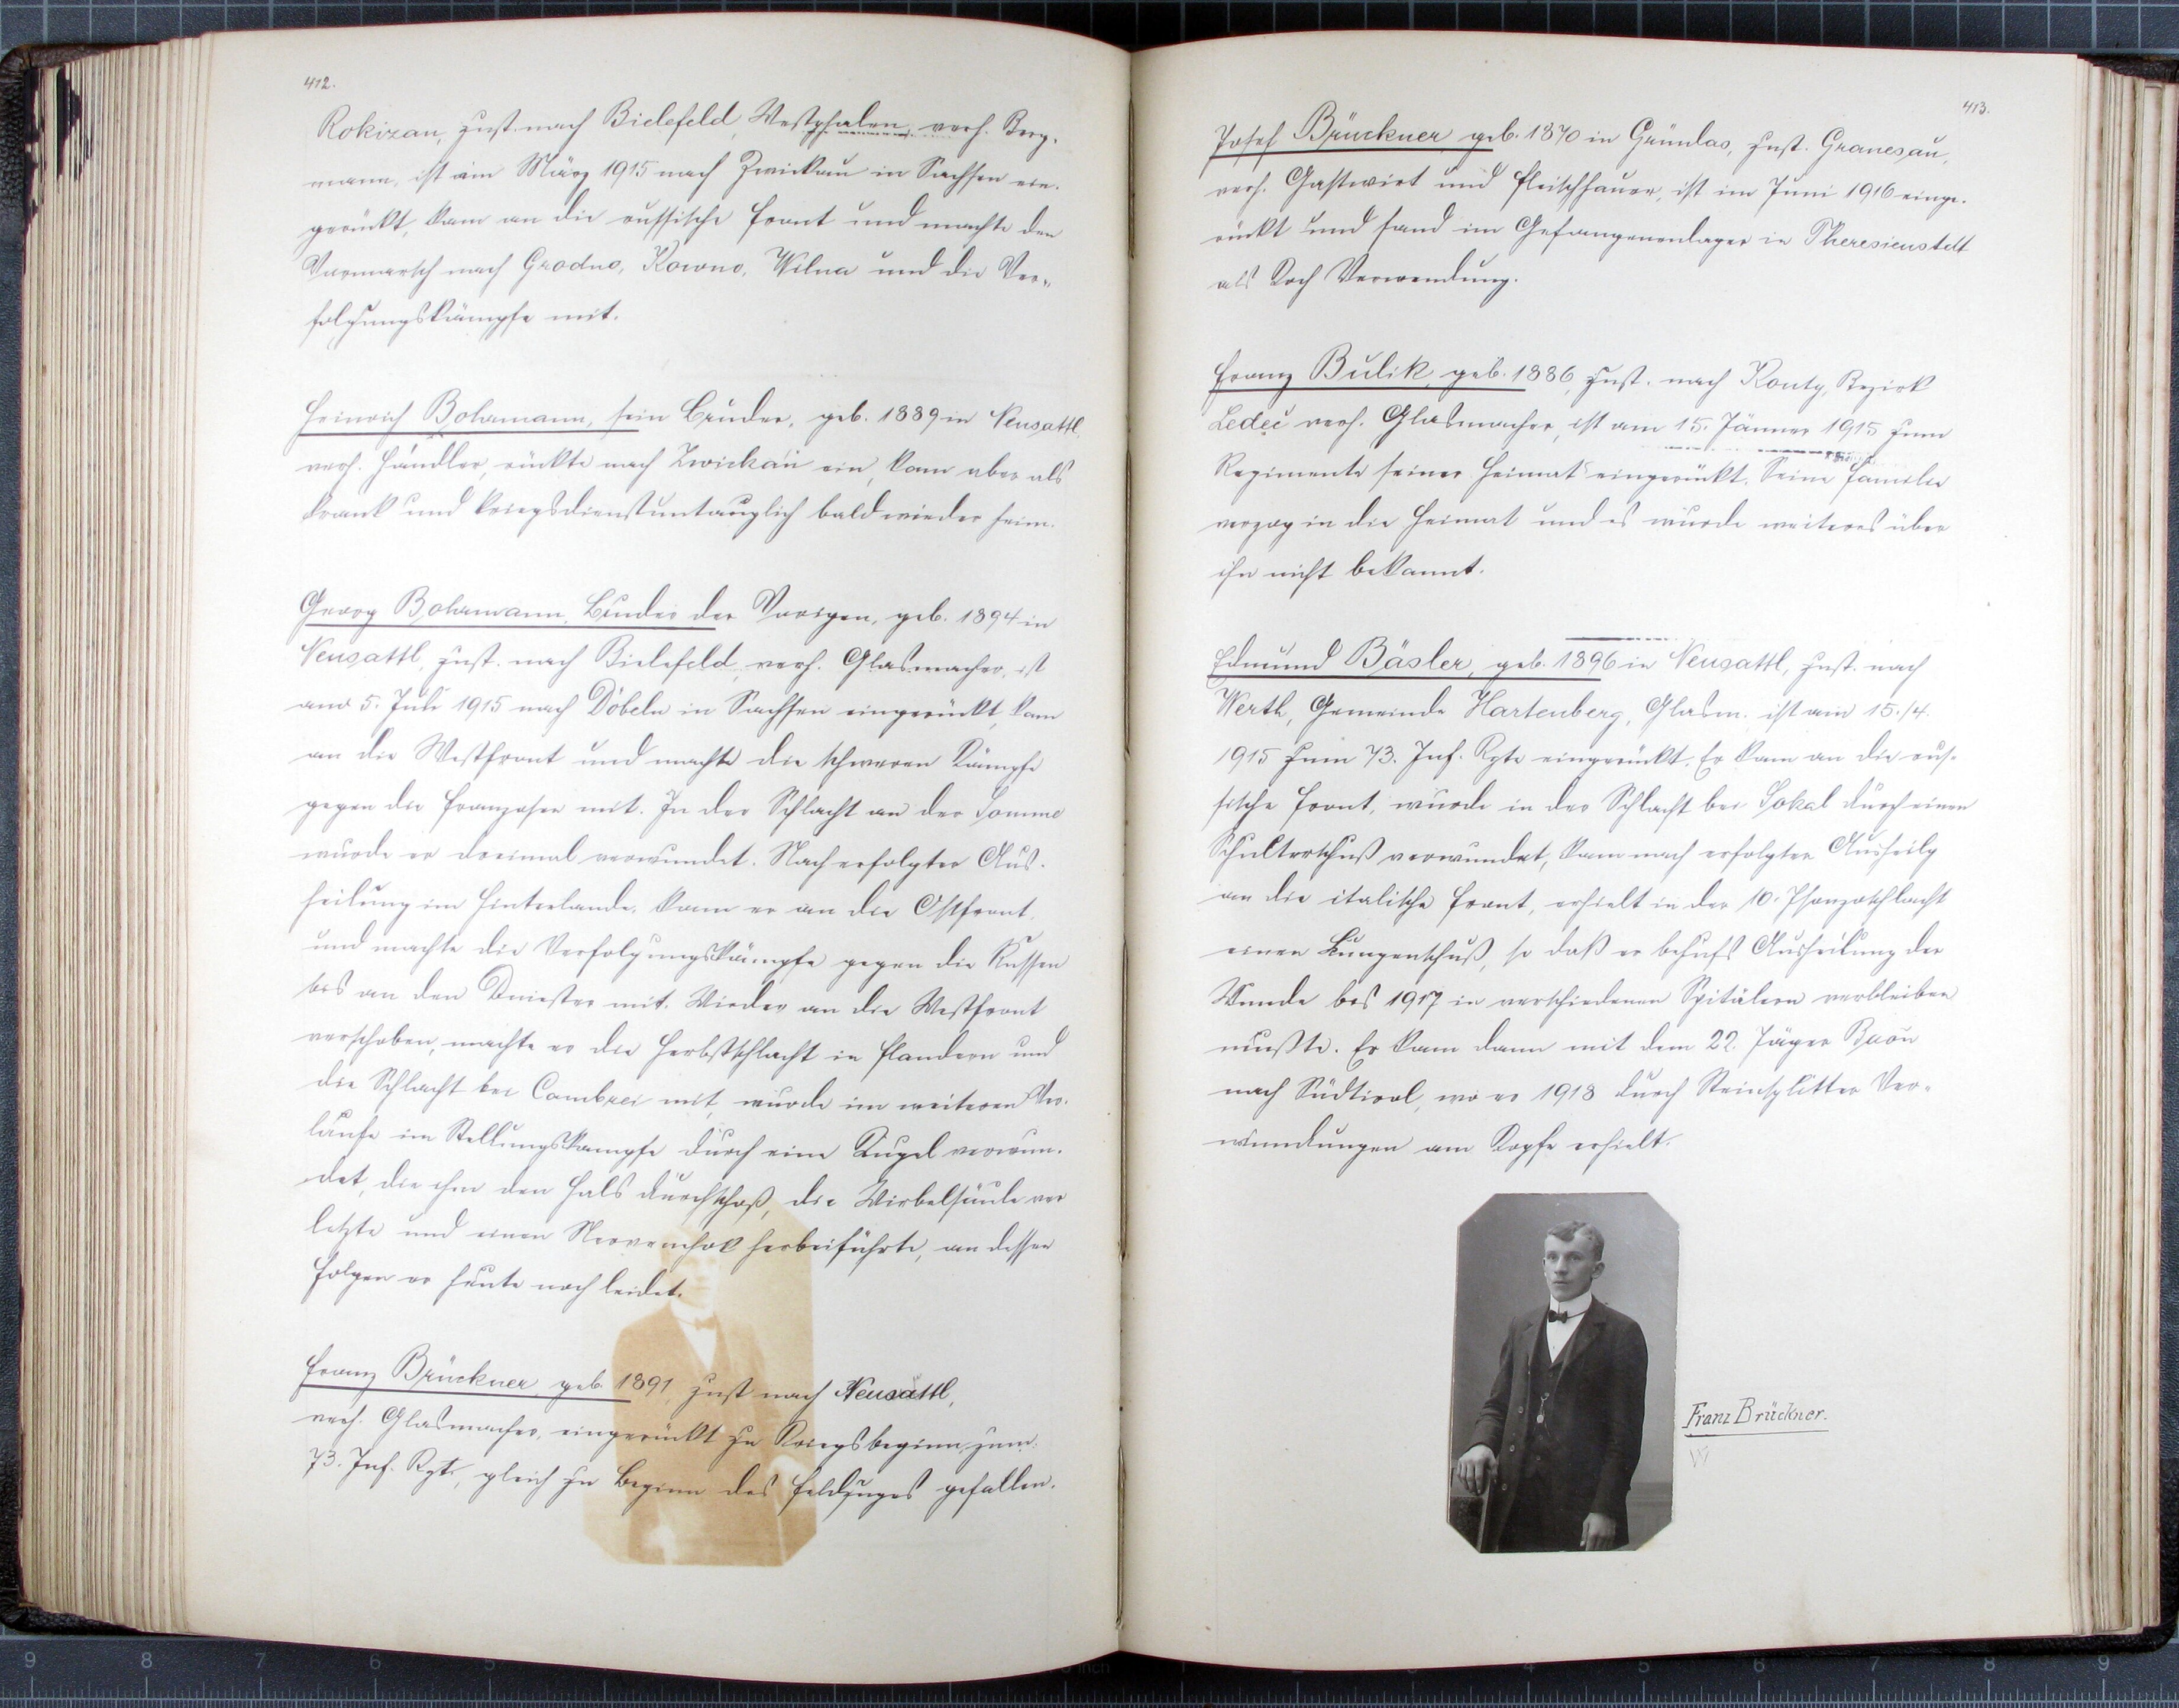 412.
Rokizan, zust. nach Bielefeld, Westphalen, verh. Berg-
mann, ist im März 1915 nach Zwickau in Sachsen ein-
gerückt, kam an die russische Front und machte den
Vormarsch nach Grodno, Kowno, Wilna und die Ver-
folgungskämpfe mit.
Heinrich Bohrmann, sein Bruder, geb. 1889 in Neusattl,
verh. Händler, rückte nach Zwickau ein, kam aber als
krank und kriegsdienstuntauglich bald wieder heim.
Georg Bohrmann, Bruder der Vorigen, geb. 1894 in
Neusattl, zust. nach Bielefeld, verh. Glasmacher, ist
am 5. Juli 1915 nach Döbeln in Sachsen eingerückt, kam
an die Westfront und machte die schweren Kämpfe
gegen die Franzosen mit. In der Schlacht an der Somme
wurde er dreimal verwundet. Nach erfolgter Aus-
heilung im Hinterlande, kam er an die Ostfront
und machte die Verfolgungskämpfe gegen die Russen
bis an den Dniester mit. Wieder an die Westfront
verschoben, machte er die Herbstschlacht in Flandern und
die Schlacht bei Cambrei mit, wurde im weiteren Ver-
laufe im Stellungskampfe durch eine Kugel verwun-
det, die ihm den Hals durchschoß, die Wirbelsäule ver
letzte und einen Nervenchok herbeiführte, an dessen
Folgen er heute noch leidet.
Franz Brückner, geb. 1891, zust nach Neusattl,
verh. Glasmacher, eingerückt zu Kriegsbeginn zum
73. Inf. Rgte, gleich zu Beginn des Feldzuges gefallen.
413.
Josef Brückner, geb. 1870 in Grünlas, zust. Granesau,
verh. Gastwirt und Fleischhauer, ist im Juni 1916 einge-
rückt und fand im Gefangenenlager in Theresienstdt
als Koch Verwendung.
Franz Bulik, geb. 1886, zust. nach Kouty, Bezirk
Ledeč verh. Glasmacher, ist am 15. Jänner 1915 zum
Regimente seiner Heimat eingerückt. Seine Familie
verzog in die Heimat und es wurde weiteres über
ihn nicht bekannt.
Edmund Bäsler, geb. 1896 in Neusattl, zust. nach
Werth, Gemeinde Hartenberg, Glasm. ist am 15./4.
1915 zum 73. Inf. Rgte eingerückt. Er kam an die rus-
sische Front, wurde in der Schlacht bei Sokal durch einen
Schulterschuß verwundet, kam nach erfolgter Ausheilg
an die italische Front, erhielt in der 10. Isonzoschlacht
einen Lungenschuß, so daß er behufs Ausheilung der
Wunde bis 1917 in verschiedenen Spitälern verbleiben
mußte. Er kam dann mit dem 22. Jäger Baon
nach Südtirol, wo er 1918 durch Steinsplitter Ver-
wundungen am Kopfe erhielt.
Franz Brückner.
9 8 7 6 5 inch 1 2 3 4 5 6 7 8 9